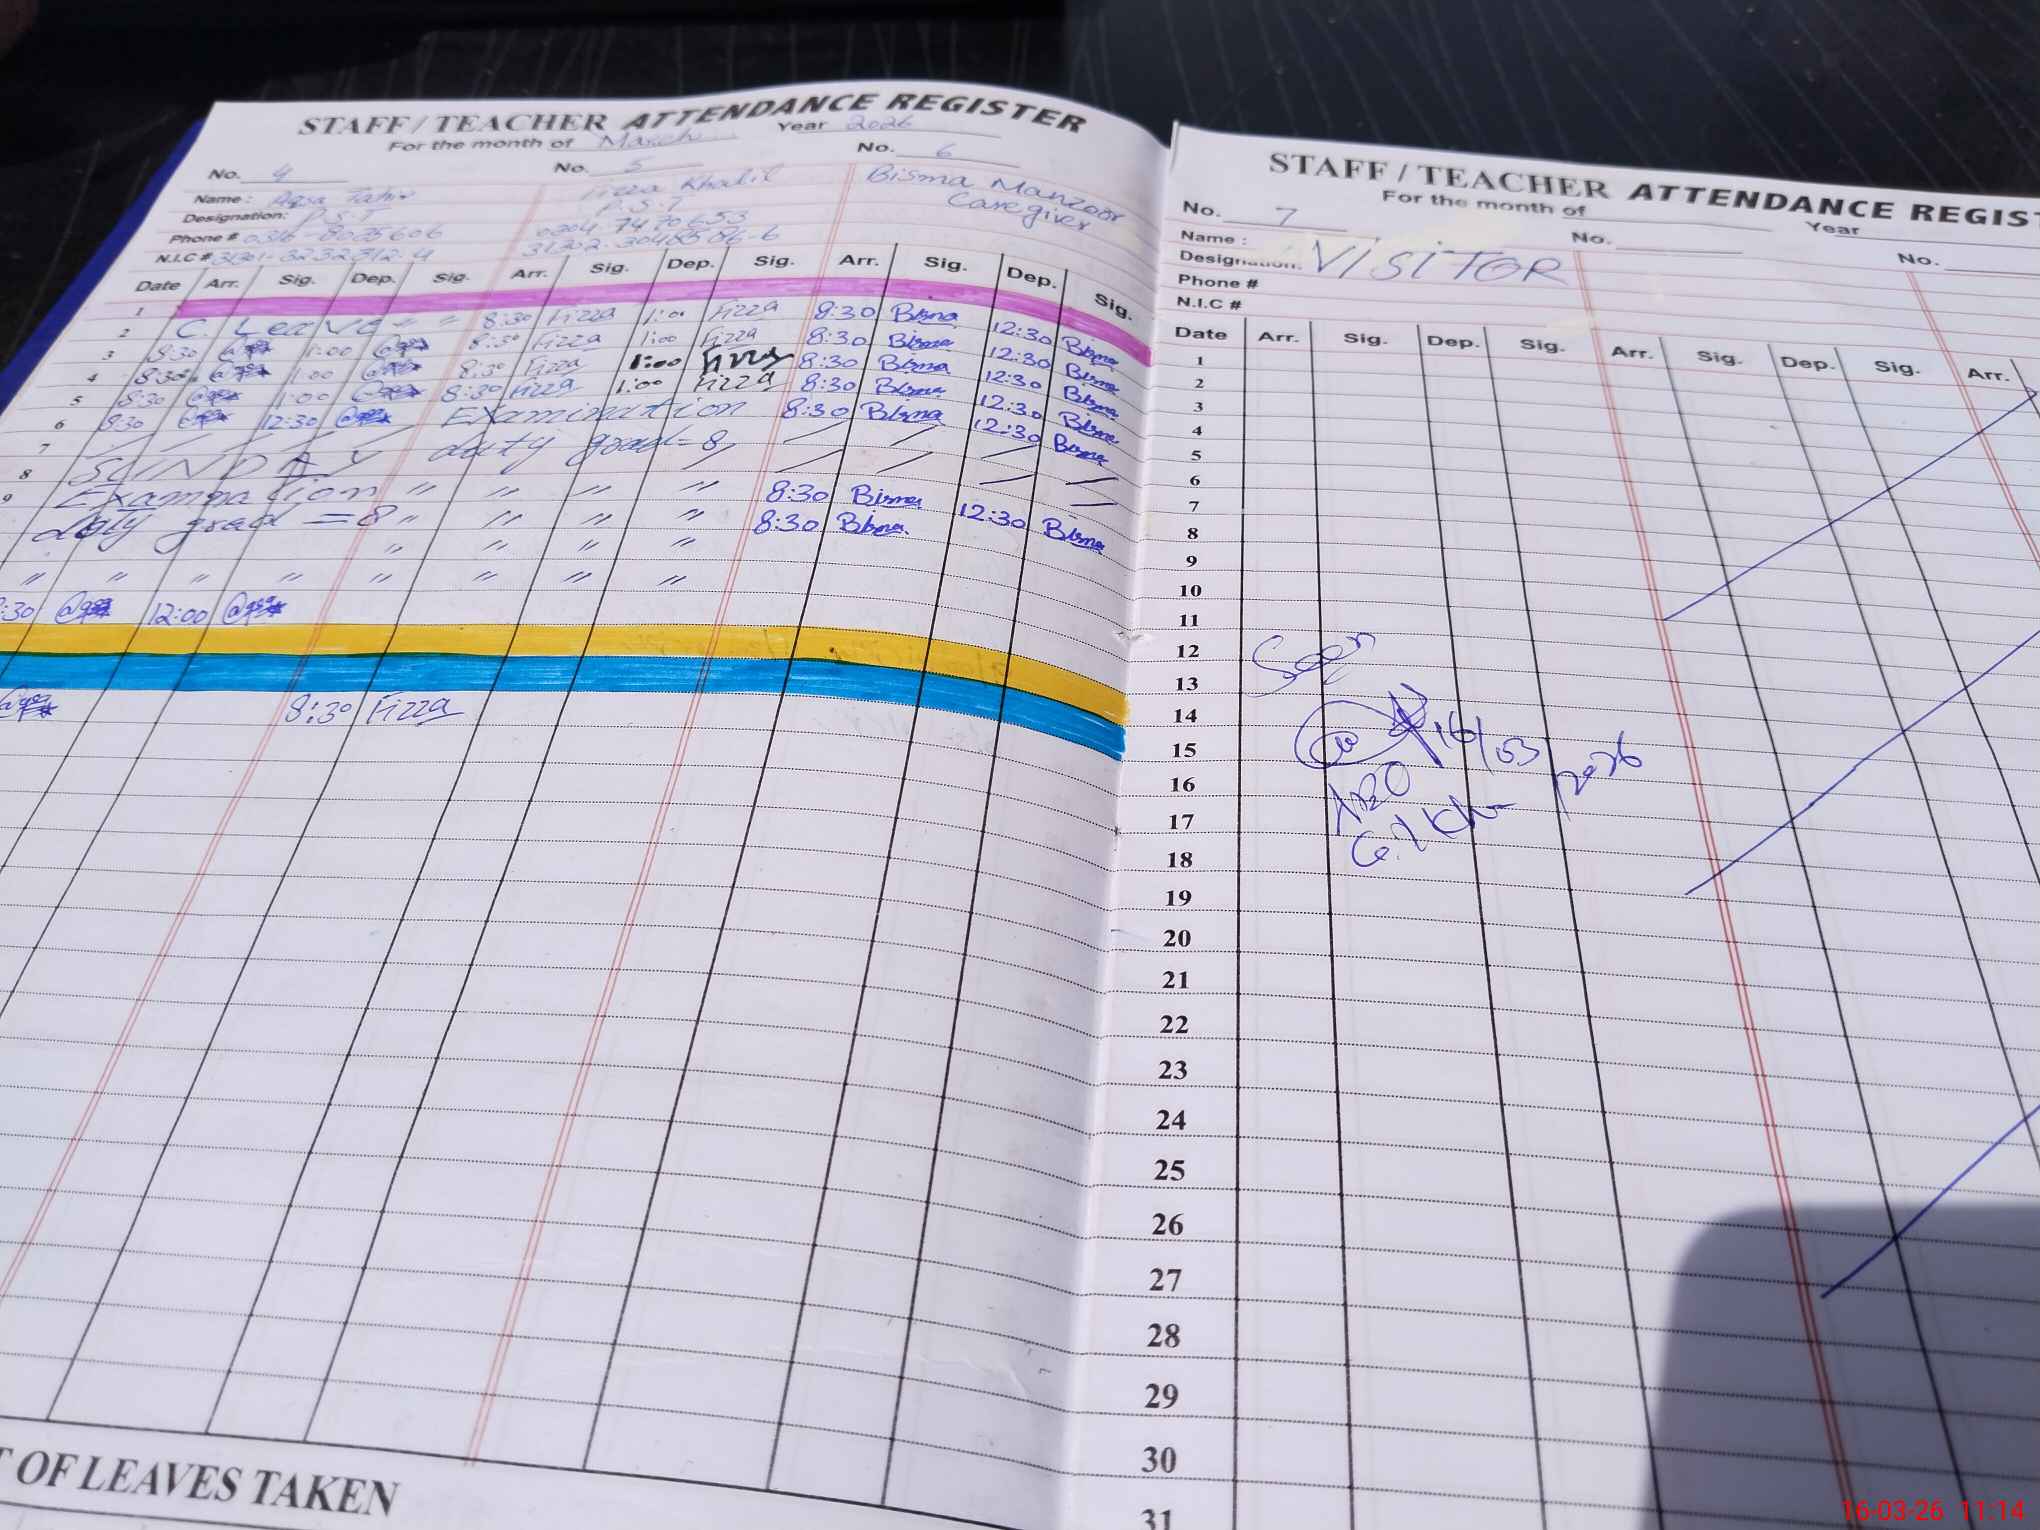 STAFF / TEACHER ATTENDANCE REGISTER
For the month of March Year 2026
No. 4 No. 5 No. 6
Name : Aqsa Tahir Fizza Khalil Bisma Manzoor
Designation: P.S.T P.S.T Caregiver
Phone # 0316-8035606 0304 7470653
N.I.C # 31301-3232312-4 31302-3048586-6
Date Arr. Sig. Dep. Sig. Arr. Sig. Dep. Sig. Arr. Sig. Dep. Sig.
1
2 C. Leave " " 8:30 Fizza 1:00 Fizza 8:30 Bisma 12:30 Bisma
3 8:30 1:00 8:30 Fizza 1:00 Fizza 8:30 Bisma 12:30 Bisma
4 8:30 1:00 8:30 Fizza 1:00 Fizza 8:30 Bisma 12:30 Bisma
5 8:30 1:00 8:30 Fizza 1:00 Fizza 8:30 Bisma 12:30 Bisma
6 8:30 12:30 Examination 8:30 Bisma 12:30 Bisma
7 duty grad=8
8 SUNDAY
9 Examination " " " " 8:30 Bisma
duty grad = 8 " " " " 8:30 Bisma 12:30 Bisma
" " " "
" " " " " " " "
8:30 12:00
8:30 Fizza
T OF LEAVES TAKEN
STAFF / TEACHER ATTENDANCE REGIST
For the month of Year
No. 7 No. No.
Name :
Designation: VISITOR
Phone #
N.I.C #
Date Arr. Sig. Dep. Sig. Arr. Sig. Dep. Sig. Arr.
1
2
3
4
5
6
7
8
9
10
11
12 Seen
13
14
15 16/03/2026
16
17
18
19
20
21
22
23
24
25
26
27
28
29
30
31
16-03-26 11:14